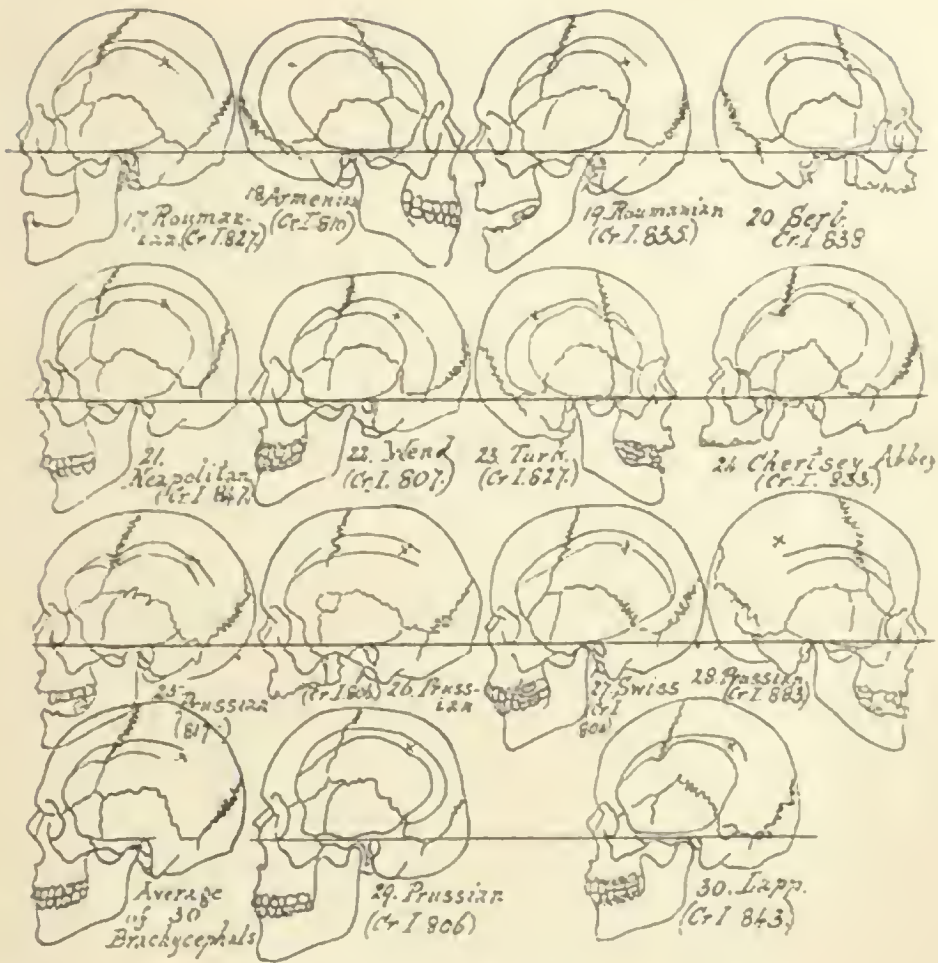 17. Rouman-
ian. (Cr I. 827.)
18. Armenian
(Cr I. 810)
19. Roumanian
(Cr. I. 835.)
20 Serb.
Cr. I 838
21.
Neapolitan
(Cr I 847.)
22. Wend
(Cr. I. 807.)
23. Turk.
(Cr. I. 827.)
24 Chertsey Abbey
(Cr. I. 833.)
25. Prussian
(817.)
(Cr I.
26. Pruss-
ian
27. Swiss
(Cr I
28. Prussian
(Cr I. 883)
Average
of 30
Brachycephals
29. Prussian
(Cr I 806)
30. Lapp.
(Cr I 843.)